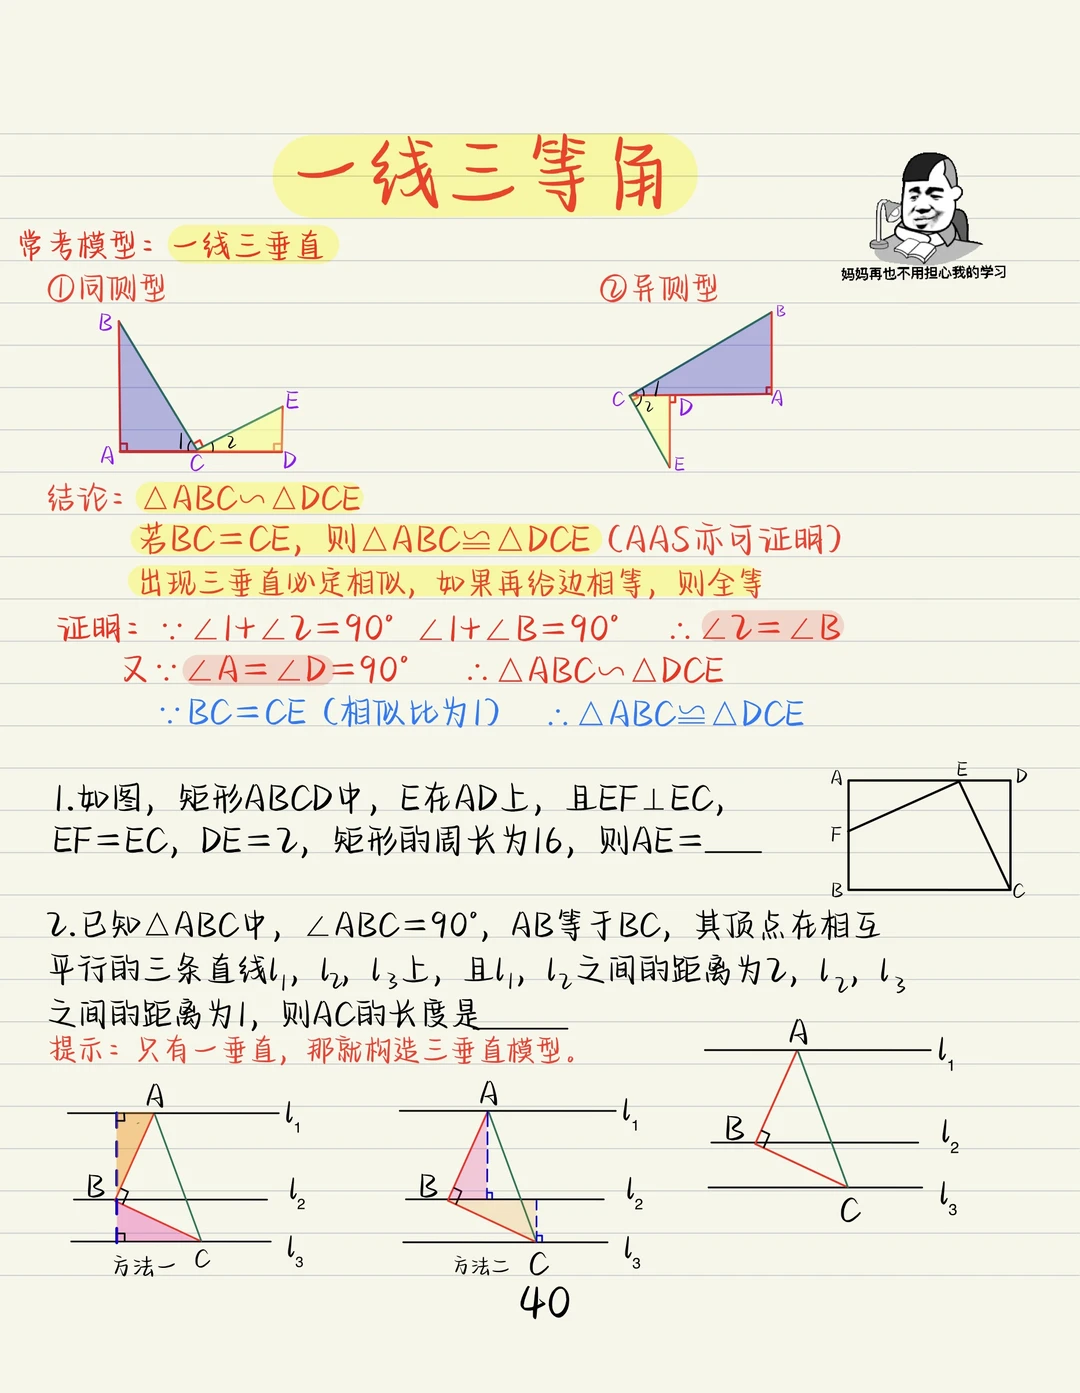 一线三等角
妈妈再也不用担心我的学习
常考模型：一线三垂直
①同侧型
②异侧型
B
E
1
2
A
C
D
B
C
1
2
D
A
E
结论：△ABC∽△DCE
若BC=CE，则△ABC≌△DCE（AAS亦可证明）
出现三垂直必定相似，如果再给边相等，则全等
证明：∵∠1+∠2=90° ∠1+∠B=90° ∴∠2=∠B
又∵∠A=∠D=90° ∴△ABC∽△DCE
∵BC=CE（相似比为1） ∴△ABC≌△DCE
1.如图，矩形ABCD中，E在AD上，且EF⊥EC，
EF=EC，DE=2，矩形的周长为16，则AE=____
A
E
D
F
B
C
2.已知△ABC中，∠ABC=90°，AB等于BC，其顶点在相互
平行的三条直线l₁，l₂，l₃上，且l₁，l₂之间的距离为2，l₂，l₃
之间的距离为1，则AC的长度是______
提示：只有一垂直，那就构造三垂直模型。
A
l₁
B
l₂
C
l₃
方法一
A
l₁
B
l₂
C
l₃
方法二
A
l₁
B
l₂
C
l₃
40